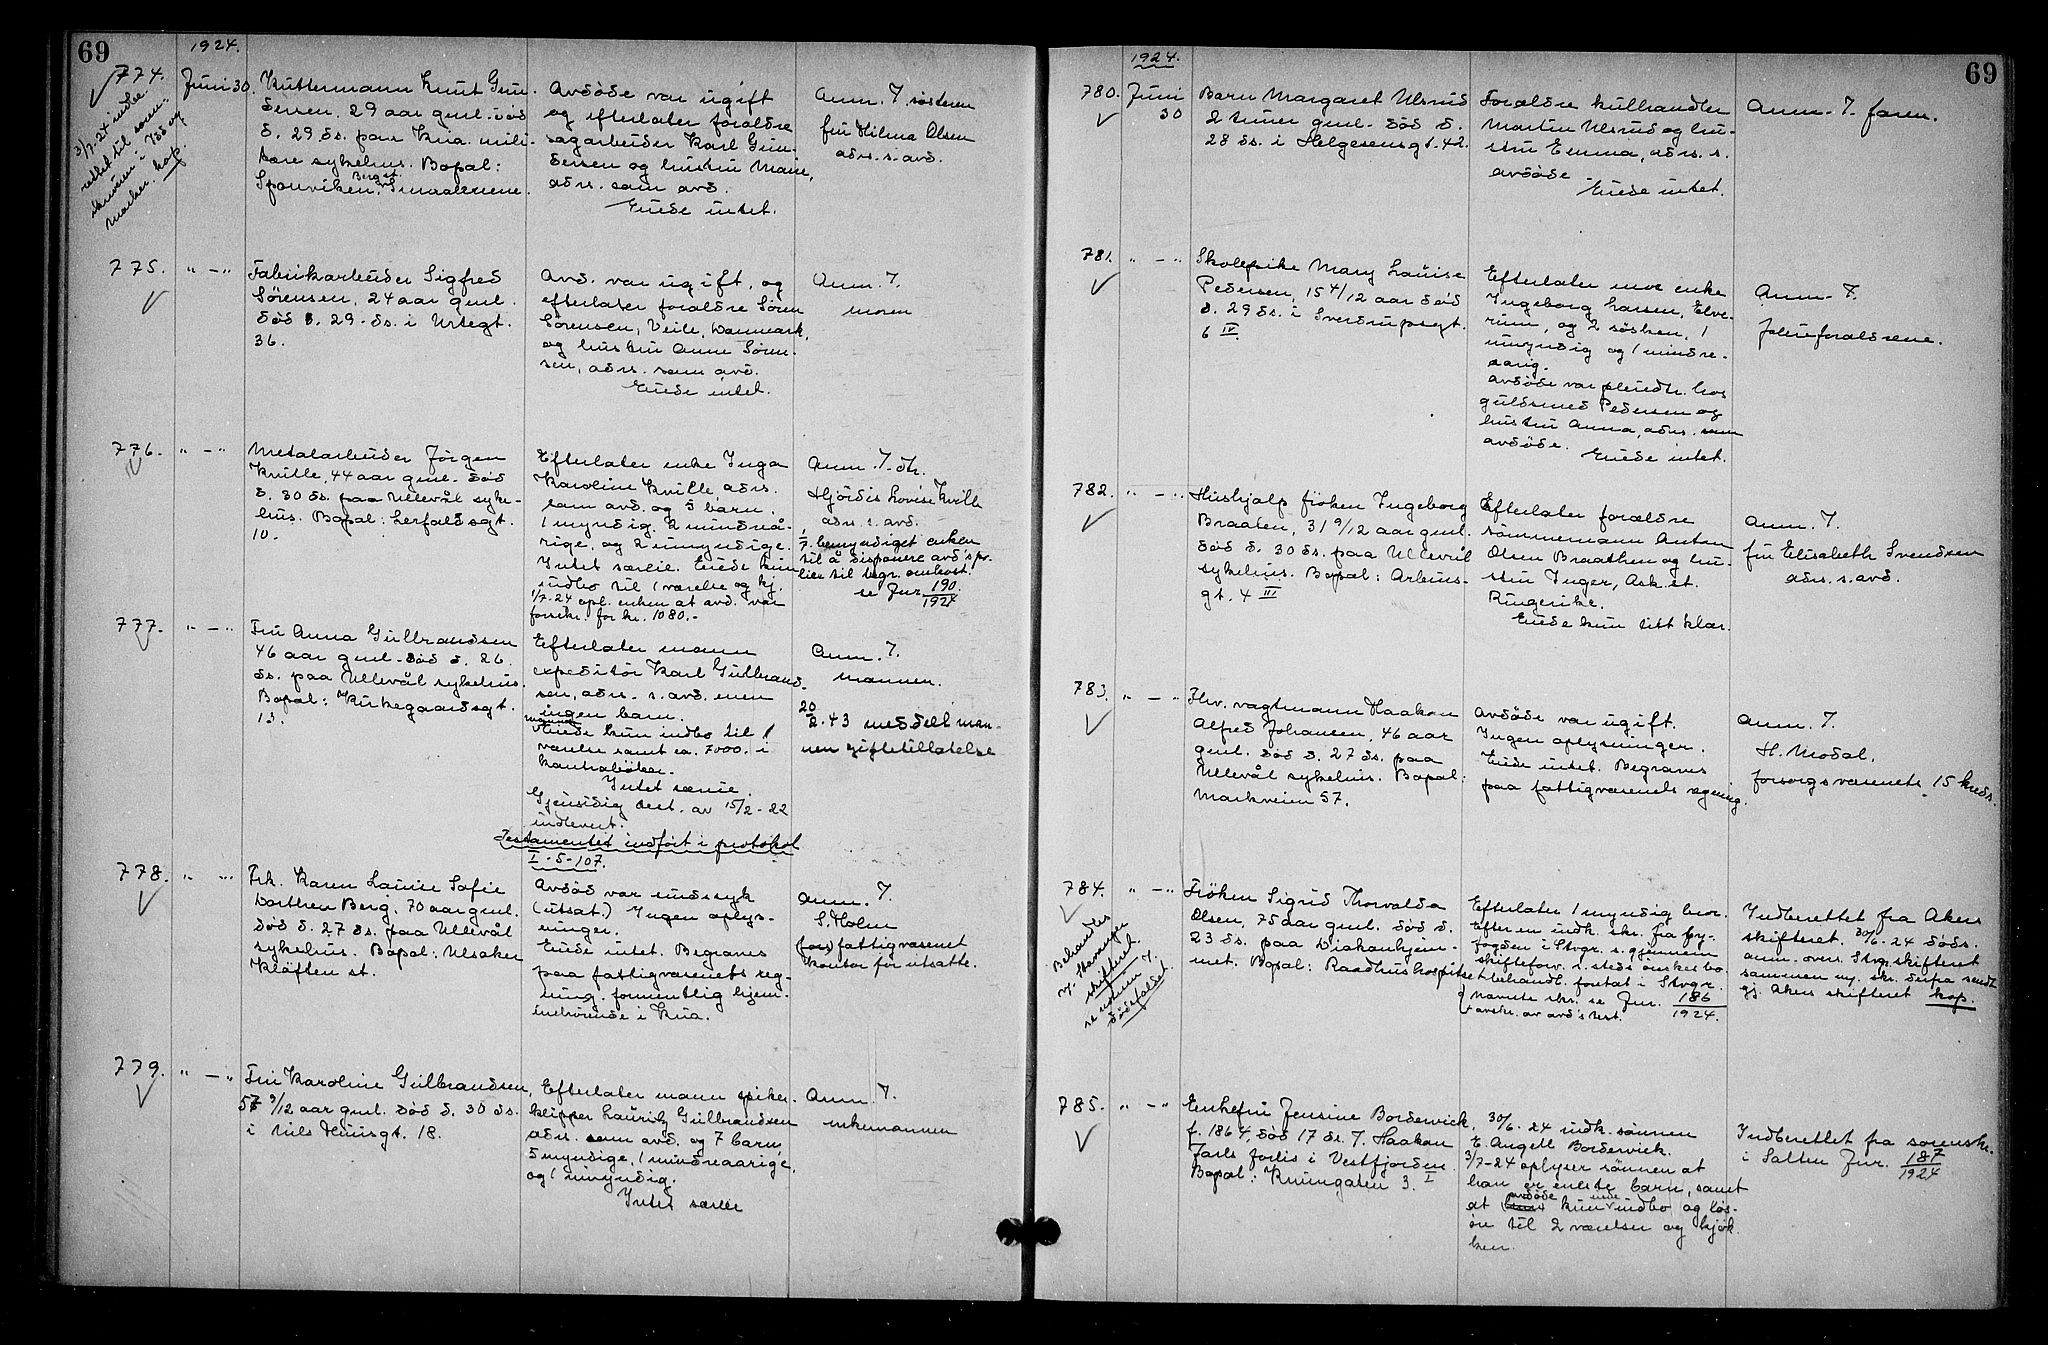 69
1924.
774.
3/7-24 indbe-
rettet til soren-
skriveren i Idd og
Marker. kop.
Juni 30.
Kuttermann Knut Gun-
dersen, 29 aar gml. død
d. 29 ds. paa Kria. mili-
tære sykehus. Bopæl:
Sponviken, Berg st. Smaalenene.
Avdöde var ugift
og efterlater forældre
sagarbeider Karl Gun-
dersen og hustru Marie,
adrs. som avd.
Eiede intet.
Anm. T. søsteren
fru Hilma Olsen
adrs. s. avd.
775.
" — "
Fabrikarbeider Sigfred
Sörensen, 24 aar gml.
död d. 29. ds. i Urtegt.
36.
Avd. var ugift, og
efterlater forældre Sören
Sörensen, Veile, Danmark,
og hustru Anne Sören-
sen, adrs. som avd.
Eiede intet.
Anm. T.
moren
776.
" — "
Metalarbeider Jörgen
Kville, 44 aar gml. död
d. 30 ds. paa Ullevål syke-
hus. Bopæl: Herfølds gt.
10.
Efterlater enke Inga
Karoline Kville, adrs.
som avd. og 5 barn,
1 myndig, 2 mindreå-
rige, og 2 umyndige.
Intet særeie. Eiede kun
indbo til 1 værelse og kj.
1/7-24 opl. enken at avd. var
forsikr. for kr. 1080.-
Anm. T. dtr.
Hjördis Lovise Kville
adrs. s. avd.
1/7. bemyndiget enken
til å disponere avd's po-
lise til begr. omkost.
se Jnr. 190
1924
777.
" — "
Fru Anna Gulbrandsen
46 aar gml. död d. 26.
ds. paa Ullevål sykehus.
Bopæl: Kirkegaardsgt.
13.
Efterlater mann
expeditör Karl Gulbrand-
sen, adrs. s. avd. men
ingen barn.
mannen
Eiede kun indbo til 1
værelse samt ca. 7000. i
kontrabøker.
Intet særeie.
Gjensidig test. av 15/2-22
indlevert.
Testamentet indført i protokol
I - 5 - 107.
Anm. T.
mannen.
20/2. 43 meddelt man-
nen giftetillatelse
778.
" — "
Frk. Karen Laurie Sofie
Dorthea Berg, 70 aar gml.
död d. 27 ds. paa Ullevål
sykehus. Bopæl: Ulsaker
Klöften st.
Avdöd var sindssyk
(utsat.) Ingen oplys-
ninger.
Eiede intet. Begraves
paa fattigvæsenets reg-
ning. formentlig hjem-
mehörende i Kria.
Anm. T.
S. Holm
(for) fattigvæsenet
Kontor for utsatte.
779.
" — "
Fru Karoline Gulbrandsen,
57 9/12 aar gml. död d. 30 ds.
i Nils Huusgt. 18.
Efterlater mann spiker-
klipper Lauritz Gulbrandsen
adrs. som avd. og 7 barn,
5 myndige, 1 mindreaarige,
og 1 umyndig.
Intet særeie
Anm. T.
enkemannen
69
1924.
780.
Juni
30
Barn Margaret Ulsrud
2 timer gml. död d.
28 ds. i Helgesensgt. 42.
Forældre kulhandler
Martin Ulsrud og hu-
stru Emma, adrs. s.
avdöde
Eiede intet.
Anm. T. faren.
781.
" — "
Skolepike Mary Louise
Pedersen, 15 4/12 aar död
d. 29 ds. i Sverdrupsgt.
6 IV.
Efterlater mor enke
Ingeborg Larsen, Elve-
rum, og 2 søsken, 1
umyndig og 1 mindre-
aarig.
Avdöde var pleiedtr. hos
guldsmed Pedersen og
hustru Anna, adrs. som
avdöde.
Eiede intet.
Anm. T.
pleieforældrene.
782.
" — "
Hushjælp fröken Ingeborg
Braaten, 31 9/12 aar gml.
död d. 30 ds. paa Ullevål
sykehus. Bopæl: Arbins-
gt. 4 III
Efterlater forældre
tömmermann Anton
Olsen Braathen og hu-
stru Inger, Ask st.
Ringerike.
Eiede kun litt klær.
Anm. T.
fru Elisabeth Svendsen
adrs. s. avd.
783.
" — "
Fhv. vagtmann Haakon
Alfred Johansen, 46 aar
gml. död d. 27 ds. paa
Ullevål sykehus. Bopæl:
Markveien 57.
Avdöde var ugift.
Ingen oplysninger.
Eiede intet. Begraves
paa fattigvæsenets regning.
Anm. T.
H. Modal,
forsorgsvæsenets 15 kreds.
784.
Behandles
v. Stavanger
skifteret.
se
dödsfaldet.
" — "
Fröken Sigrid Thorvalda
Olsen, 75 aar gml. död d.
23 ds. paa Diakonhjem-
met. Bopæl: Raadhushospitset
Efterlater 1 myndig bror.
Efter en indk. skr. fra by-
fogden i Stvgr. s. gjennem
skifteforv. i. steds önskes bo-
behandl. foretat i Stvgr.
nævnte skr. se Jnr. 186
+ avskr. av avd's test. 1924.
Indberettet fra Aker
skifteret. 30/6-24 döds-
anm. overs. Stvgr. skifteret
sammen m. skr. derfra sendt
gj. Akers skifteret kop.
785.
" — "
Enkefru Jensine Borderwick,
f. 1864, död 17 ds. v. Haakon
Jarls forlis i Vestfjorden
Bopæl: Kruingaten 3. I
30/6-24 indk. sönnen
E. Angell Borderwick.
3/7-24 oplyser sönnen at
han er eneste barn, samt
at avdöde kun eiede indbo og lös-
öre til 2 værelser og kjök-
ken.
Indberettet fra sorenskr.
i Salten Jnr. 187
1924